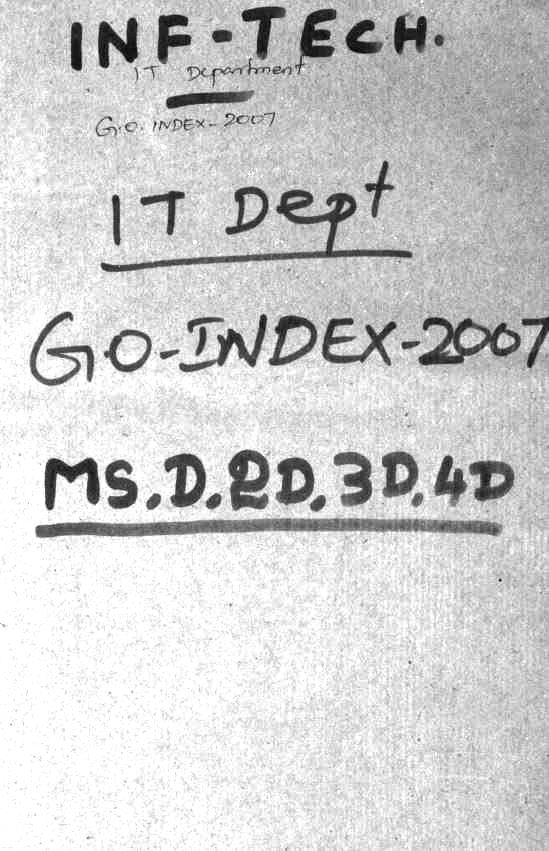 INF-TECH.
IT Department
G.O. INDEX-2007
IT Dept
G.O-INDEX-2007
MS.D.2D.3D.4D